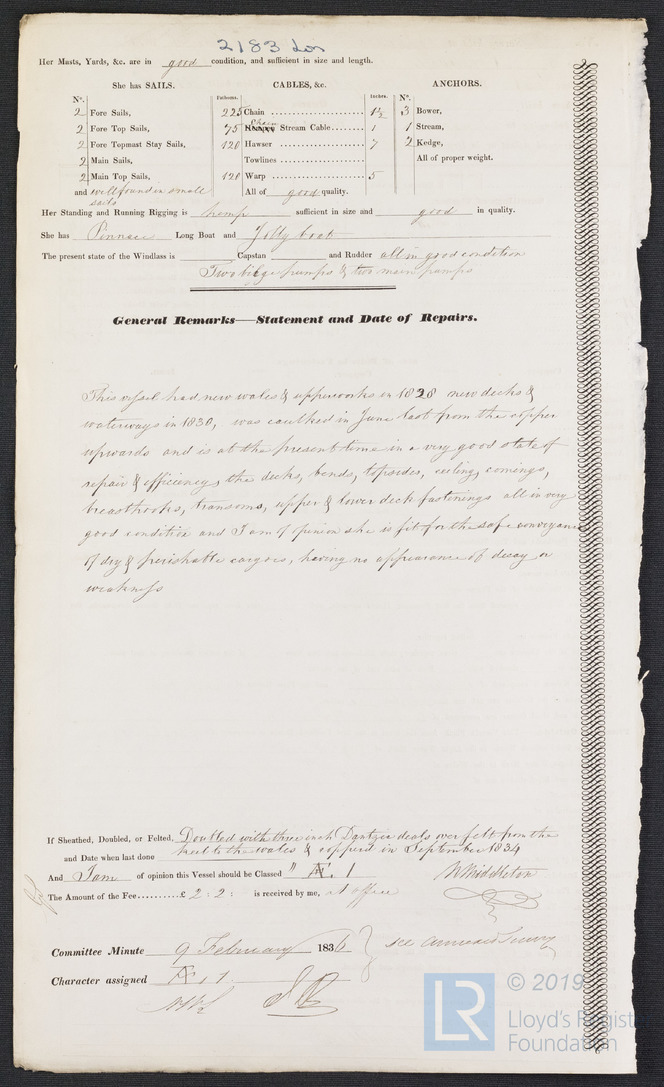 2183 Lon
Her Masts, Yards, &c. are in good condition, and sufficient in size and length.
She has SAILS. CABLES, &c. ANCHORS.
Nº. Fathoms. Inches. Nº.
2 Fore Sails, 225 Chain .................. 1½ 3 Bower,
2 Fore Top Sails, 75 Chain Stream Cable....... 1 1 Stream,
2 Fore Topmast Stay Sails, 120 Hawser .................. 7 2 Kedge,
2 Main Sails, Towlines .................. All of proper weight.
2 Main Top Sails, 120 Warp .................. 5
and well found in small sails All of good quality.
Her Standing and Running Rigging is hemp sufficient in size and good in quality.
She has Pinnace Long Boat and Jolly boat
The present state of the Windlass is Capstan and Rudder all in good condition
Two bilge pumps & two main pumps
General Remarks—Statement and Date of Repairs.
This vessel had new wales & upperworks in 1828 new decks &
waterways in 1830, was caulked in June last from the copper
upwards and is at the present time in a very good state of
repair & efficiency, the decks, bends, topsides, ceiling, comings,
breasthooks, transoms, upper & lower deck fastenings all in very
good condition and I am of opinion she is fit for the safe conveyance
of dry & perishable cargoes, having no appearance of decay or
weakness
If Sheathed, Doubled, or Felted, Doubled with three inch Dantzic deals over felt from the
and Date when last done keel to the wales & coppered in September 1834
And I am of opinion this Vessel should be Classed " Æ. 1
W Middleton
The Amount of the Fee..........£ 2 : 2 : is received by me, at office
Committee Minute 9 February 1836 see annexed Survey
Character assigned Æ 1
© 2019
LR
Lloyd's Register
Foundation